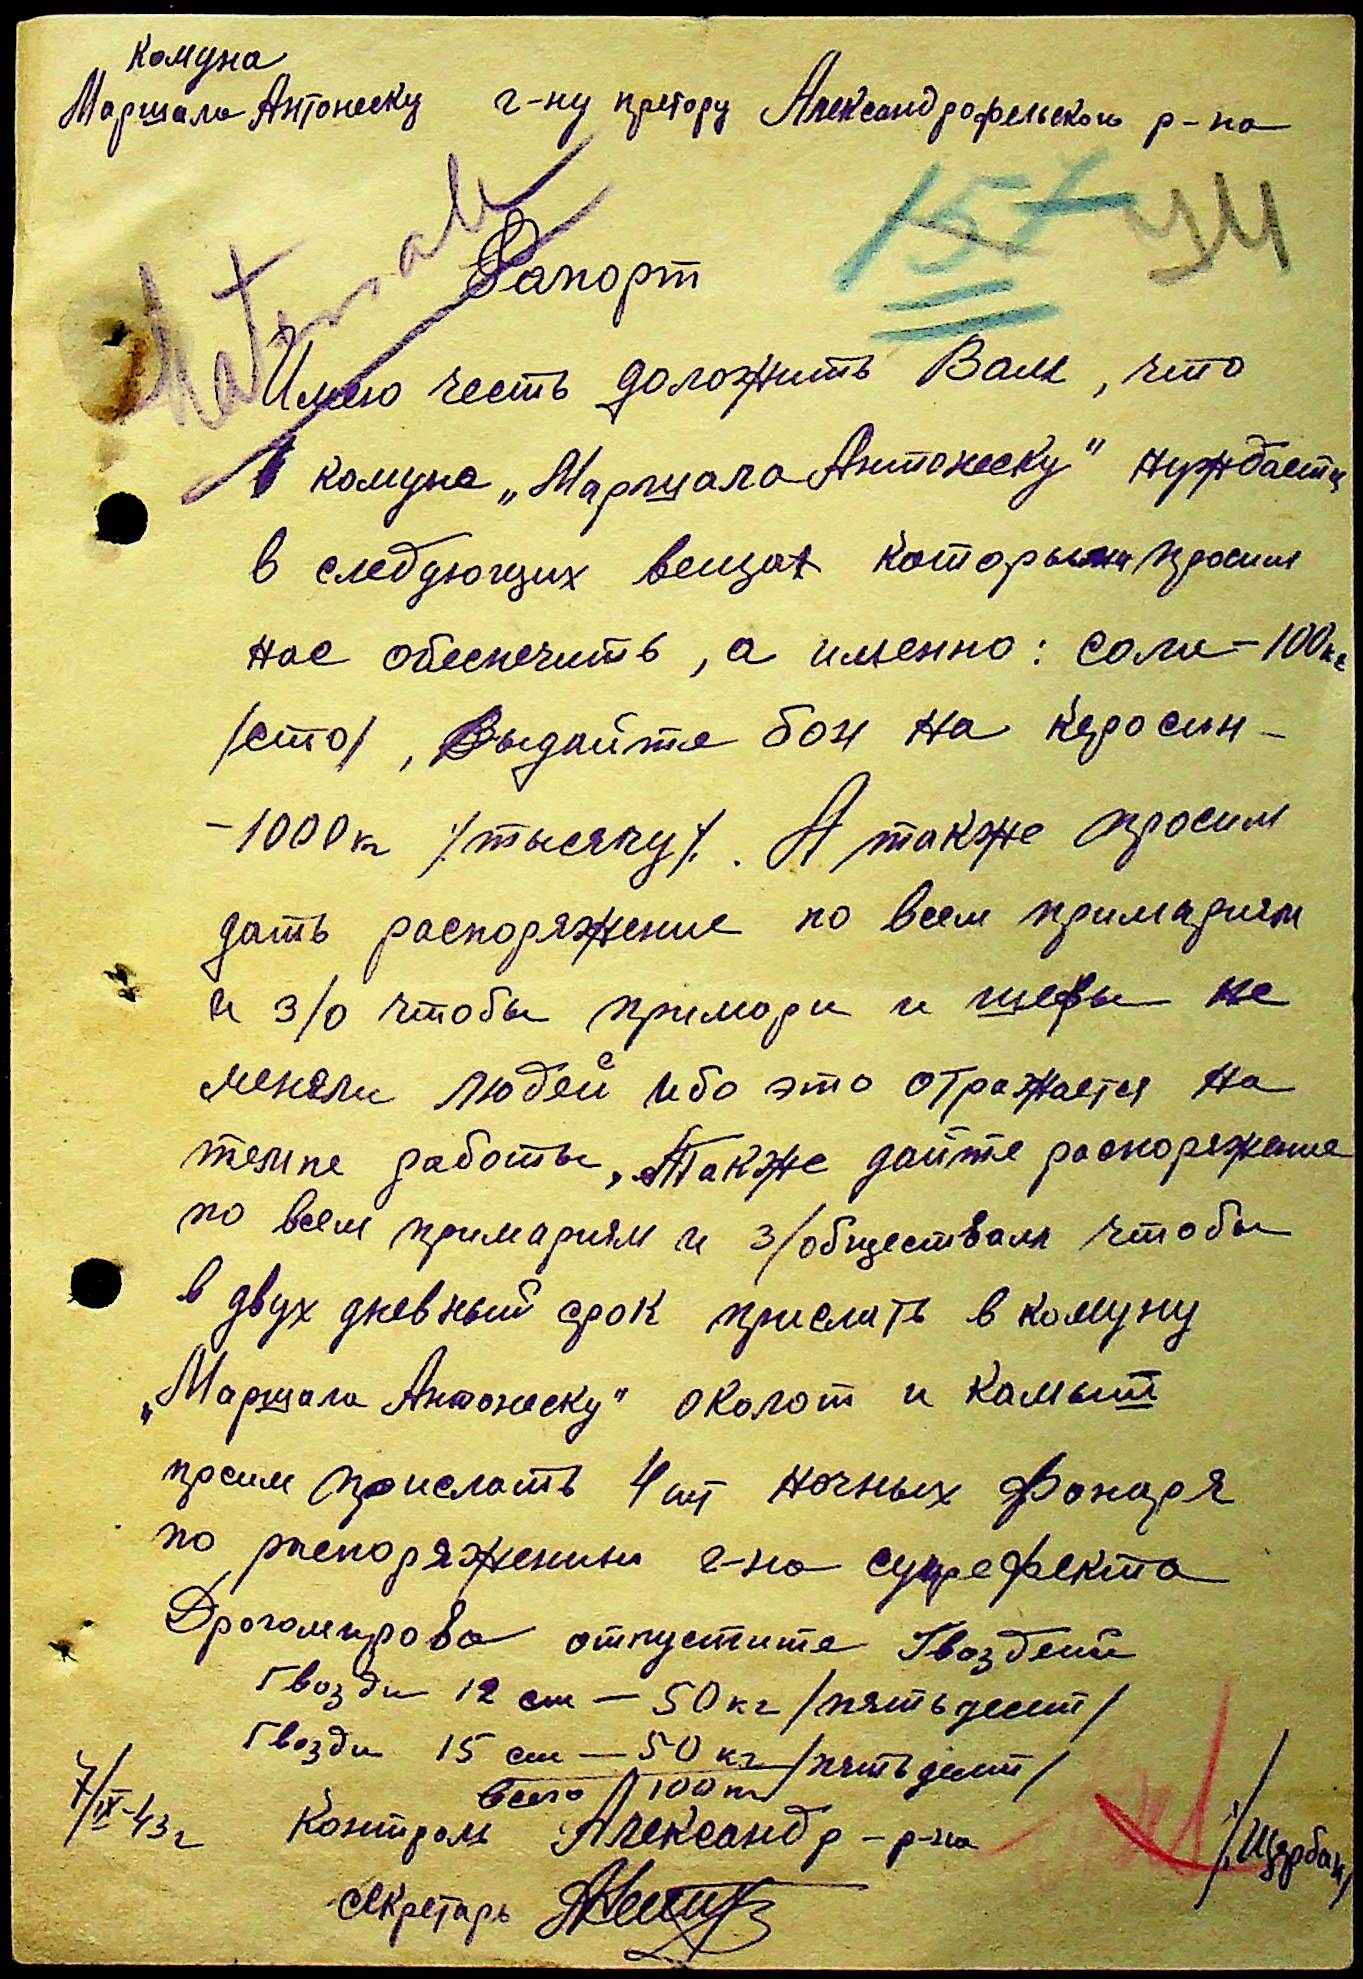 комуна
Маршала Антонеску г-ну претору Александрофельского р-на
157
Рапорт
Имею честь доложить Вам, что
комуна „Маршала Антонеску" нуждается
в следующих вещах которыми просим
нас обеспечить, а именно: соли - 100 кг
/сто/, выдайте бон на керосин -
- 1000 кг /тысячу/. А также просим
дать распоряжение по всем примариям
и з/о чтобы примари и шефы не
меняли людей ибо это отражается на
темпе работы. Также дайте распоряжение
по всем примариям и з/обществам чтобы
в двух дневный срок прислать в комуну
„Маршала Антонеску" околот и камыш
просим прислать 4 шт ночных фонаря
по распоряжению г-на супрефекта
Драгомирова отпустите Гвоздей
Гвозди 12 см — 50 кг /пятьдесят/
Гвозди 15 см — 50 кг /пятьдесят/
всего 100 кг
7/IX-43 г Контроль Александр - р-на /Щербак/
секретарь